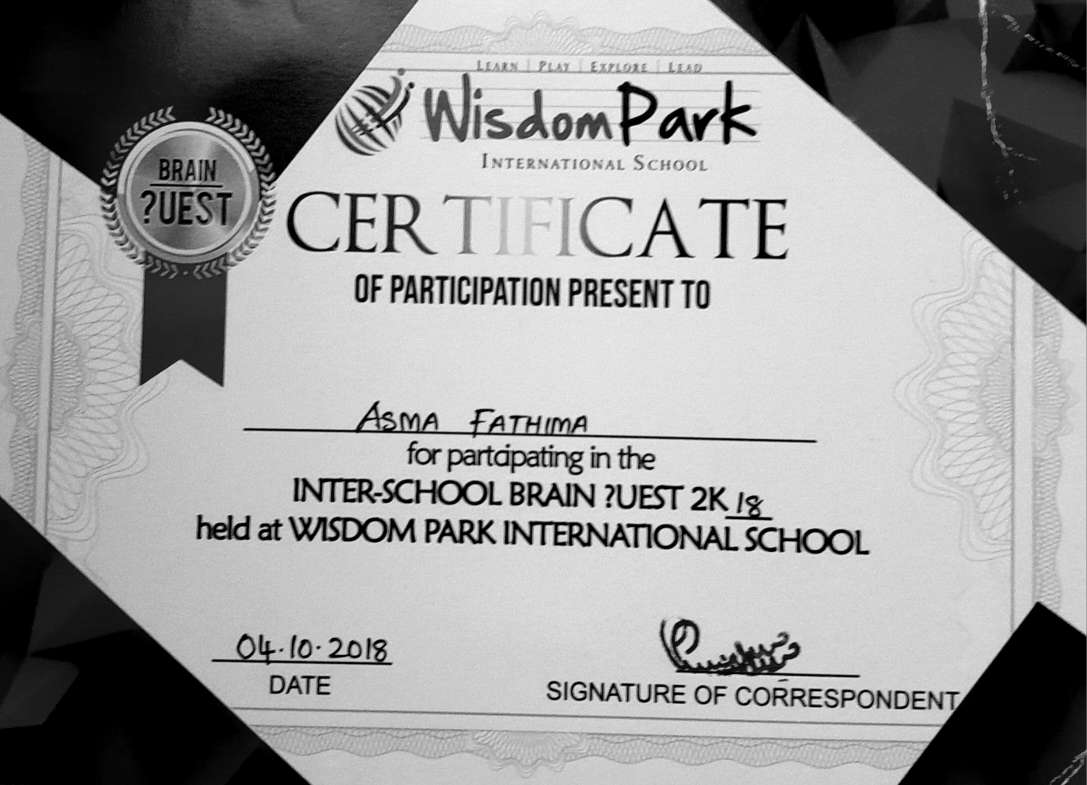 LEARN | PLAY | EXPLORE | LEAD
WisdomPark
INTERNATIONAL SCHOOL
BRAIN
?UEST
CERTIFICATE
OF PARTICIPATION PRESENT TO
ASMA FATHIMA
for partcipating in the
INTER-SCHOOL BRAIN ?UEST 2K 18
held at WISDOM PARK INTERNATIONAL SCHOOL
04.10.2018
DATE
SIGNATURE OF CORRESPONDENT